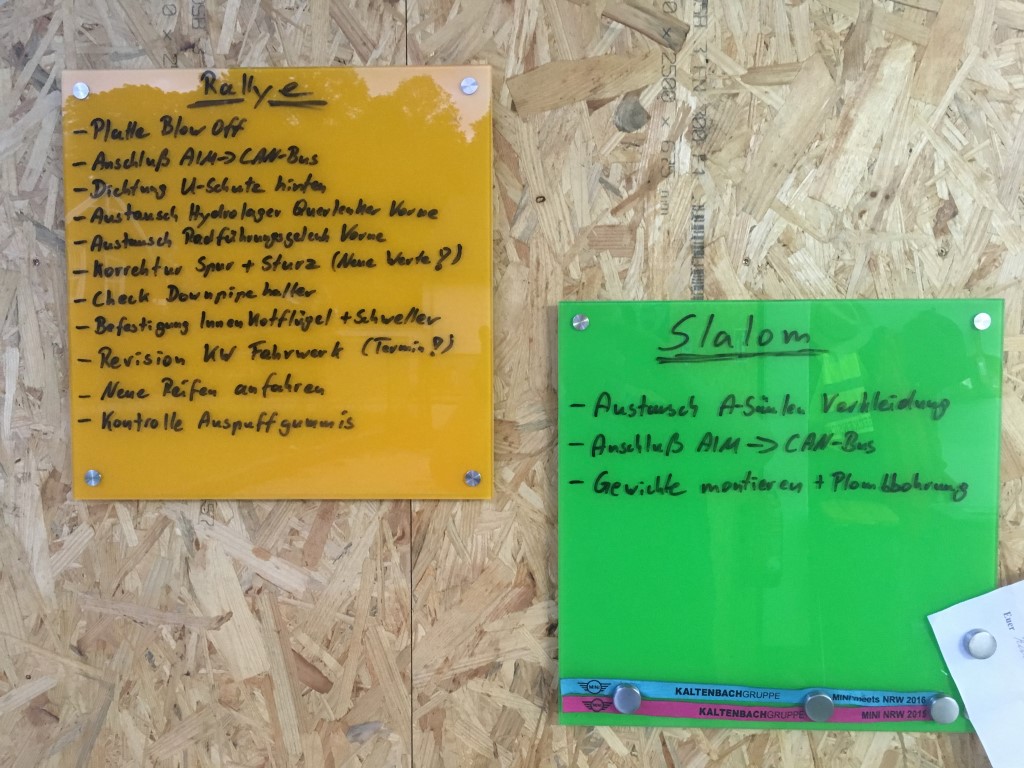 Rallye
- Platte Blow Off
- Anschluß AIM -> CAN-Bus
- Dichtung U-Schutz hinten
- Austausch Hydrolager Querlenker Vorne
- Austausch Radführungsgelenk Vorne
- Korrektur Spur + Sturz (Neue Werte?)
- Check Downpipe halter
- Befestigung Innen Kotflügel + Schweller
- Revision KW Fahrwerk (Termin?)
- Neue Reifen anfahren
- Kontrolle Auspuffgummis
Slalom
- Austausch A-Säulen Verkleidung
- Anschluß AIM -> CAN-Bus
- Gewichte montieren + Plombbohrung
MINI KALTENBACHGRUPPE MINI meets NRW 2016
KALTENBACHGRUPPE MINI NRW 2015
Euer